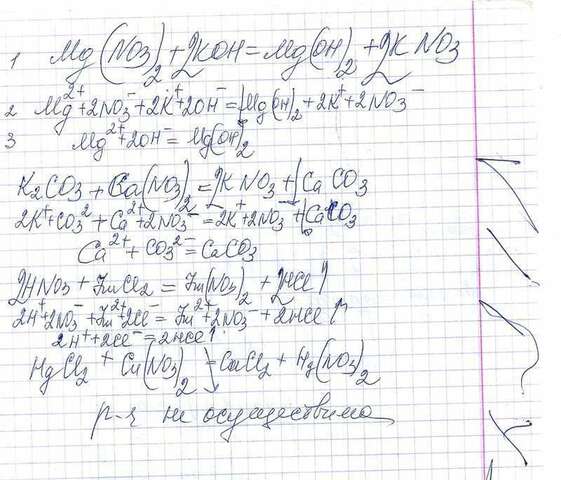 1 Mg(NO3)2 + 2KOH = Mg(OH)2 + 2KNO3
2 Mg²⁺ + 2NO3⁻ + 2K⁺ + 2OH⁻ = ↓Mg(OH)2 + 2K⁺ + 2NO3⁻
3 Mg²⁺ + 2OH⁻ = Mg(OH)2
K2CO3 + Ca(NO3)2 = 2KNO3 + ↓CaCO3
2K⁺ + CO3² + Ca²⁺ + 2NO3⁻ = 2K⁺ + 2NO3⁻ + ↓CaCO3
Ca²⁺ + CO3²⁻ = CaCO3
2HNO3 + ZnCl2 = Zn(NO3)2 + 2HCl↑
2H⁺ + 2NO3⁻ + Zn²⁺ + 2Cl⁻ = Zn²⁺ + 2NO3⁻ + 2HCl↑
2H⁺ + 2Cl⁻ = 2HCl↑
HgCl2 + Cu(NO3)2 → CuCl2 + Hg(NO3)2
р-я не осуществима